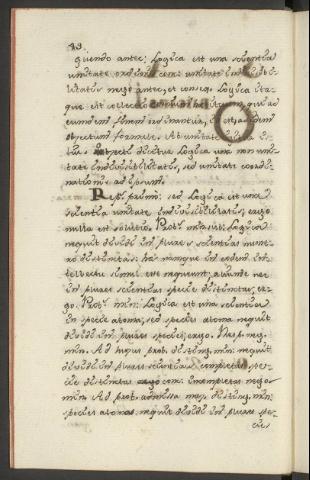 quendo antec; Logica est una scientia
unitate ordinis conc: unitate indivisibi-
litatis nego antec, et conseq. Logica ita-
que est collectio habituum, qui ad
eumdem finem ordinantur,
objectum formale. At unitate
dicitur Logica una non uni-
tate indivisibilitatis, sed unitate coordi-
nationis ad
Resp. primo: sed Logica est una
scientia unitate indivisibilitatis, ergo
nulla est solutio. Prob. min: Logica
nequit dividi in plures scientias nume-
ro distinctas: hae namque in eodem in-
tellectu simul esse nequeunt, aliunde nec
in plures scientias specie distinctas, er-
go. Prob. min: Logica est una scientia
in specie atoma, sed species atoma nequit
dividi in plures species, ergo. Resp. neg.
min. Ad hujus prob. disting. min: nequit
dividi in plures scientias completas spe-
cie distinctas conc: incompletas nego
min. Ad prob. admissa maj. disting. min:
species atoma nequit dividi in plures spe-
cies